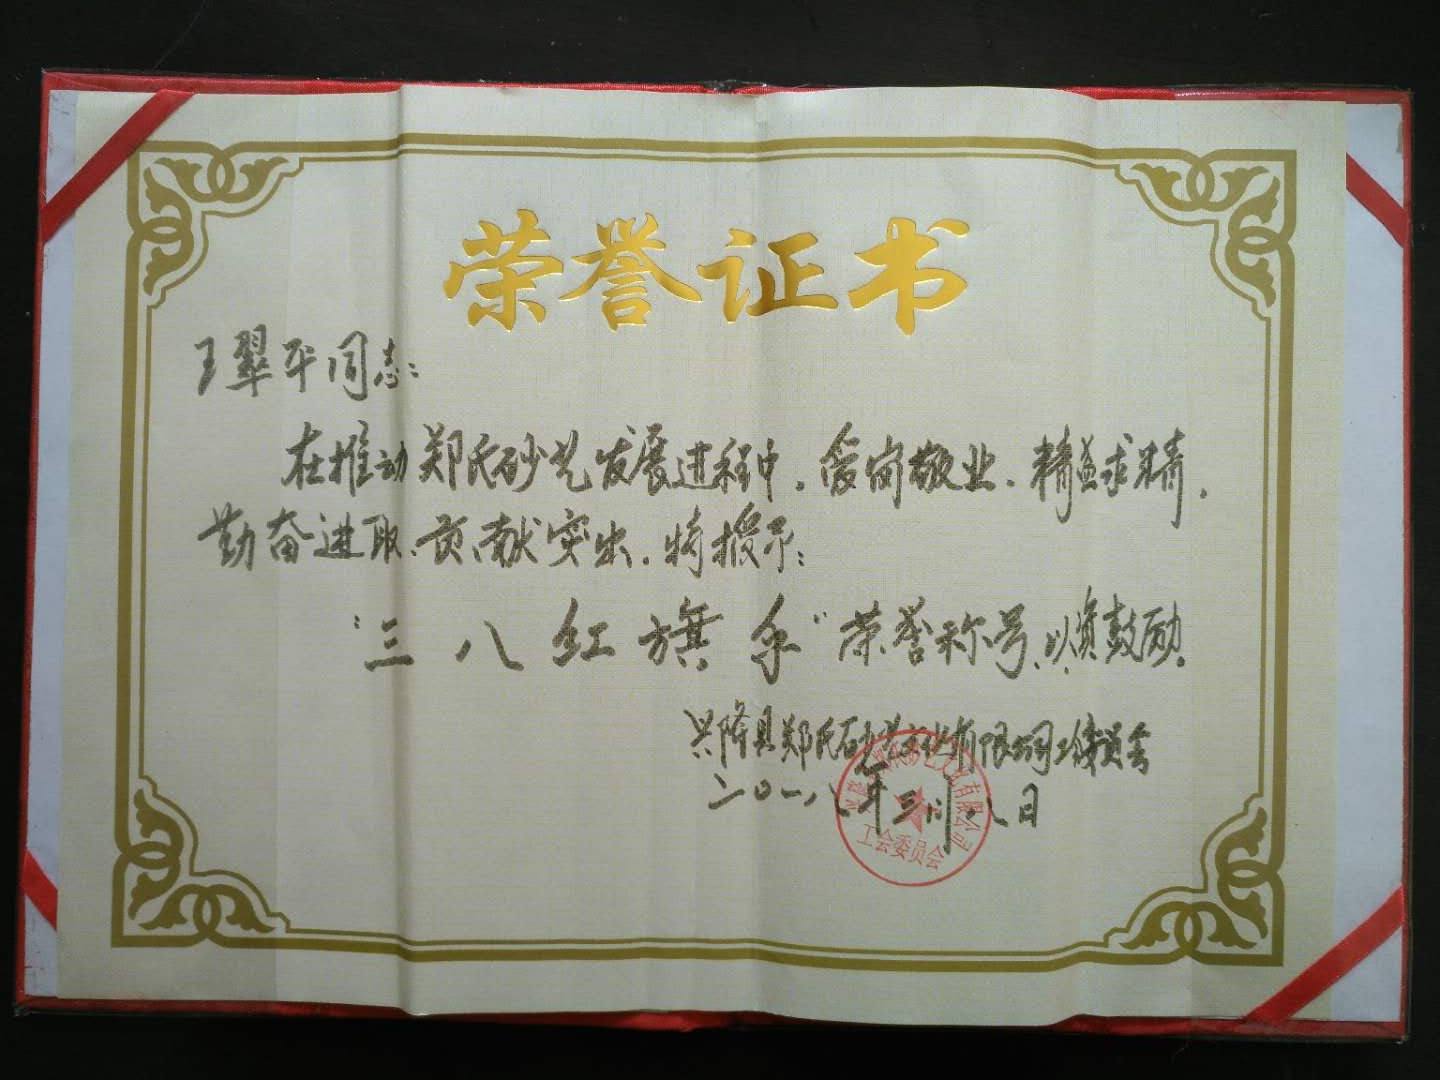 荣誉证书
王翠平同志:
在推动郑氏砂艺发展进程中,爱岗敬业,精益求精,
勤奋进取、贡献突出,特授予:
“三八红旗手”荣誉称号、以资鼓励。
兴隆县郑氏砂艺文化有限公司工会委员会
二〇一八年三月八日
工会委员会